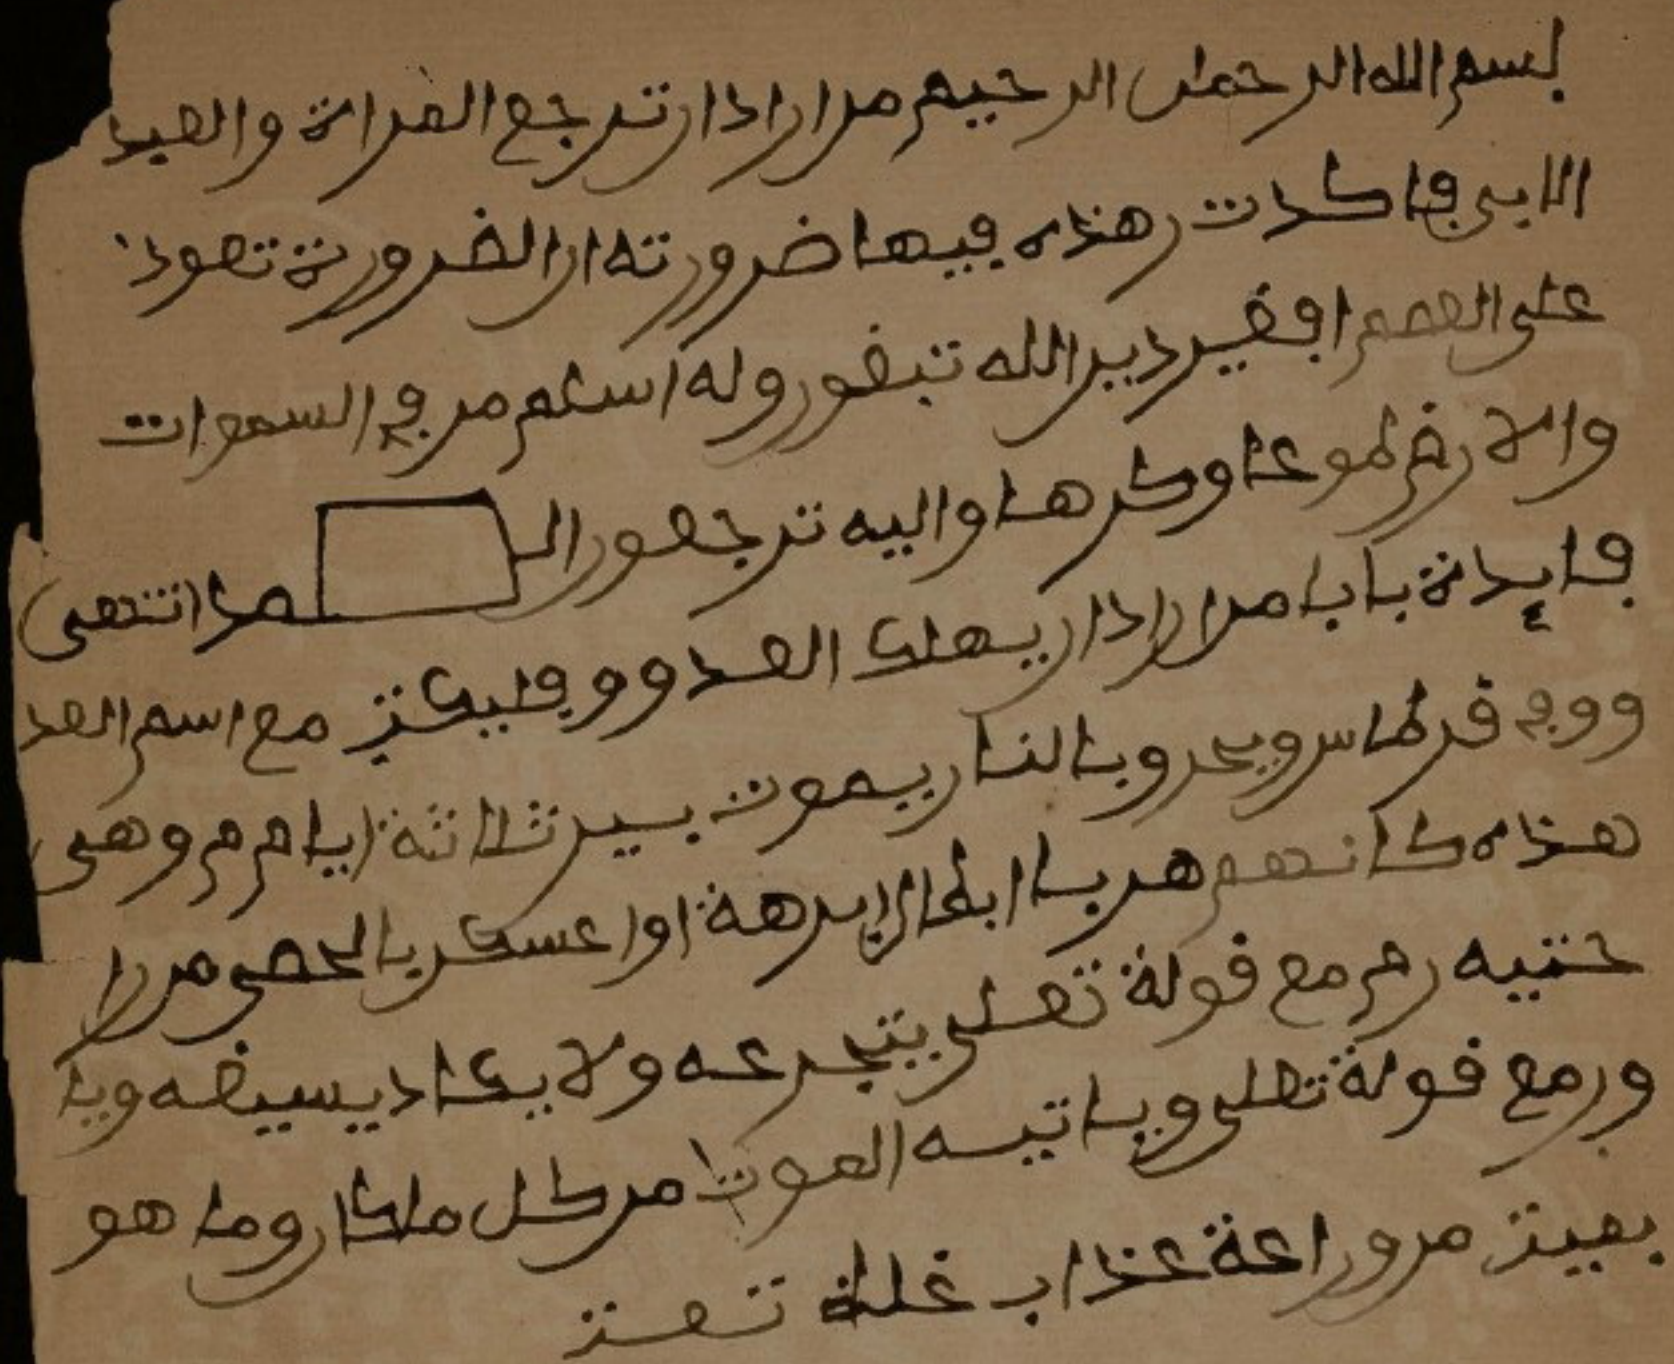 بسم الله الرحمن الرحيم من اراد ان ترجع المراة والعبد
الابي فاكدت هذه فيها ضرورته ان الضرورة تعود
على العصم افغير دير الله تبغون وله اسلم من في السموات
والارض طوعا وكرها واليه ترجعون انتهى
فايدة بابا من اراد ان يهلك العدوو فليكتب مع اسم العد
وو في قرطاس ويحرو بالنار يموت بين ثلاثة ايام م م وهي
هذه كانهم هربا ابطال ابرهة اوا عسكر بالحصى من را
حتيه رم مع قولة تعلى يتجرعه ولا يكاد يسيغه ويا
ورمع قولة تعلى وياتيه الموت من كل مكان وما هو
بميت من وراءة عذاب غلة تمت